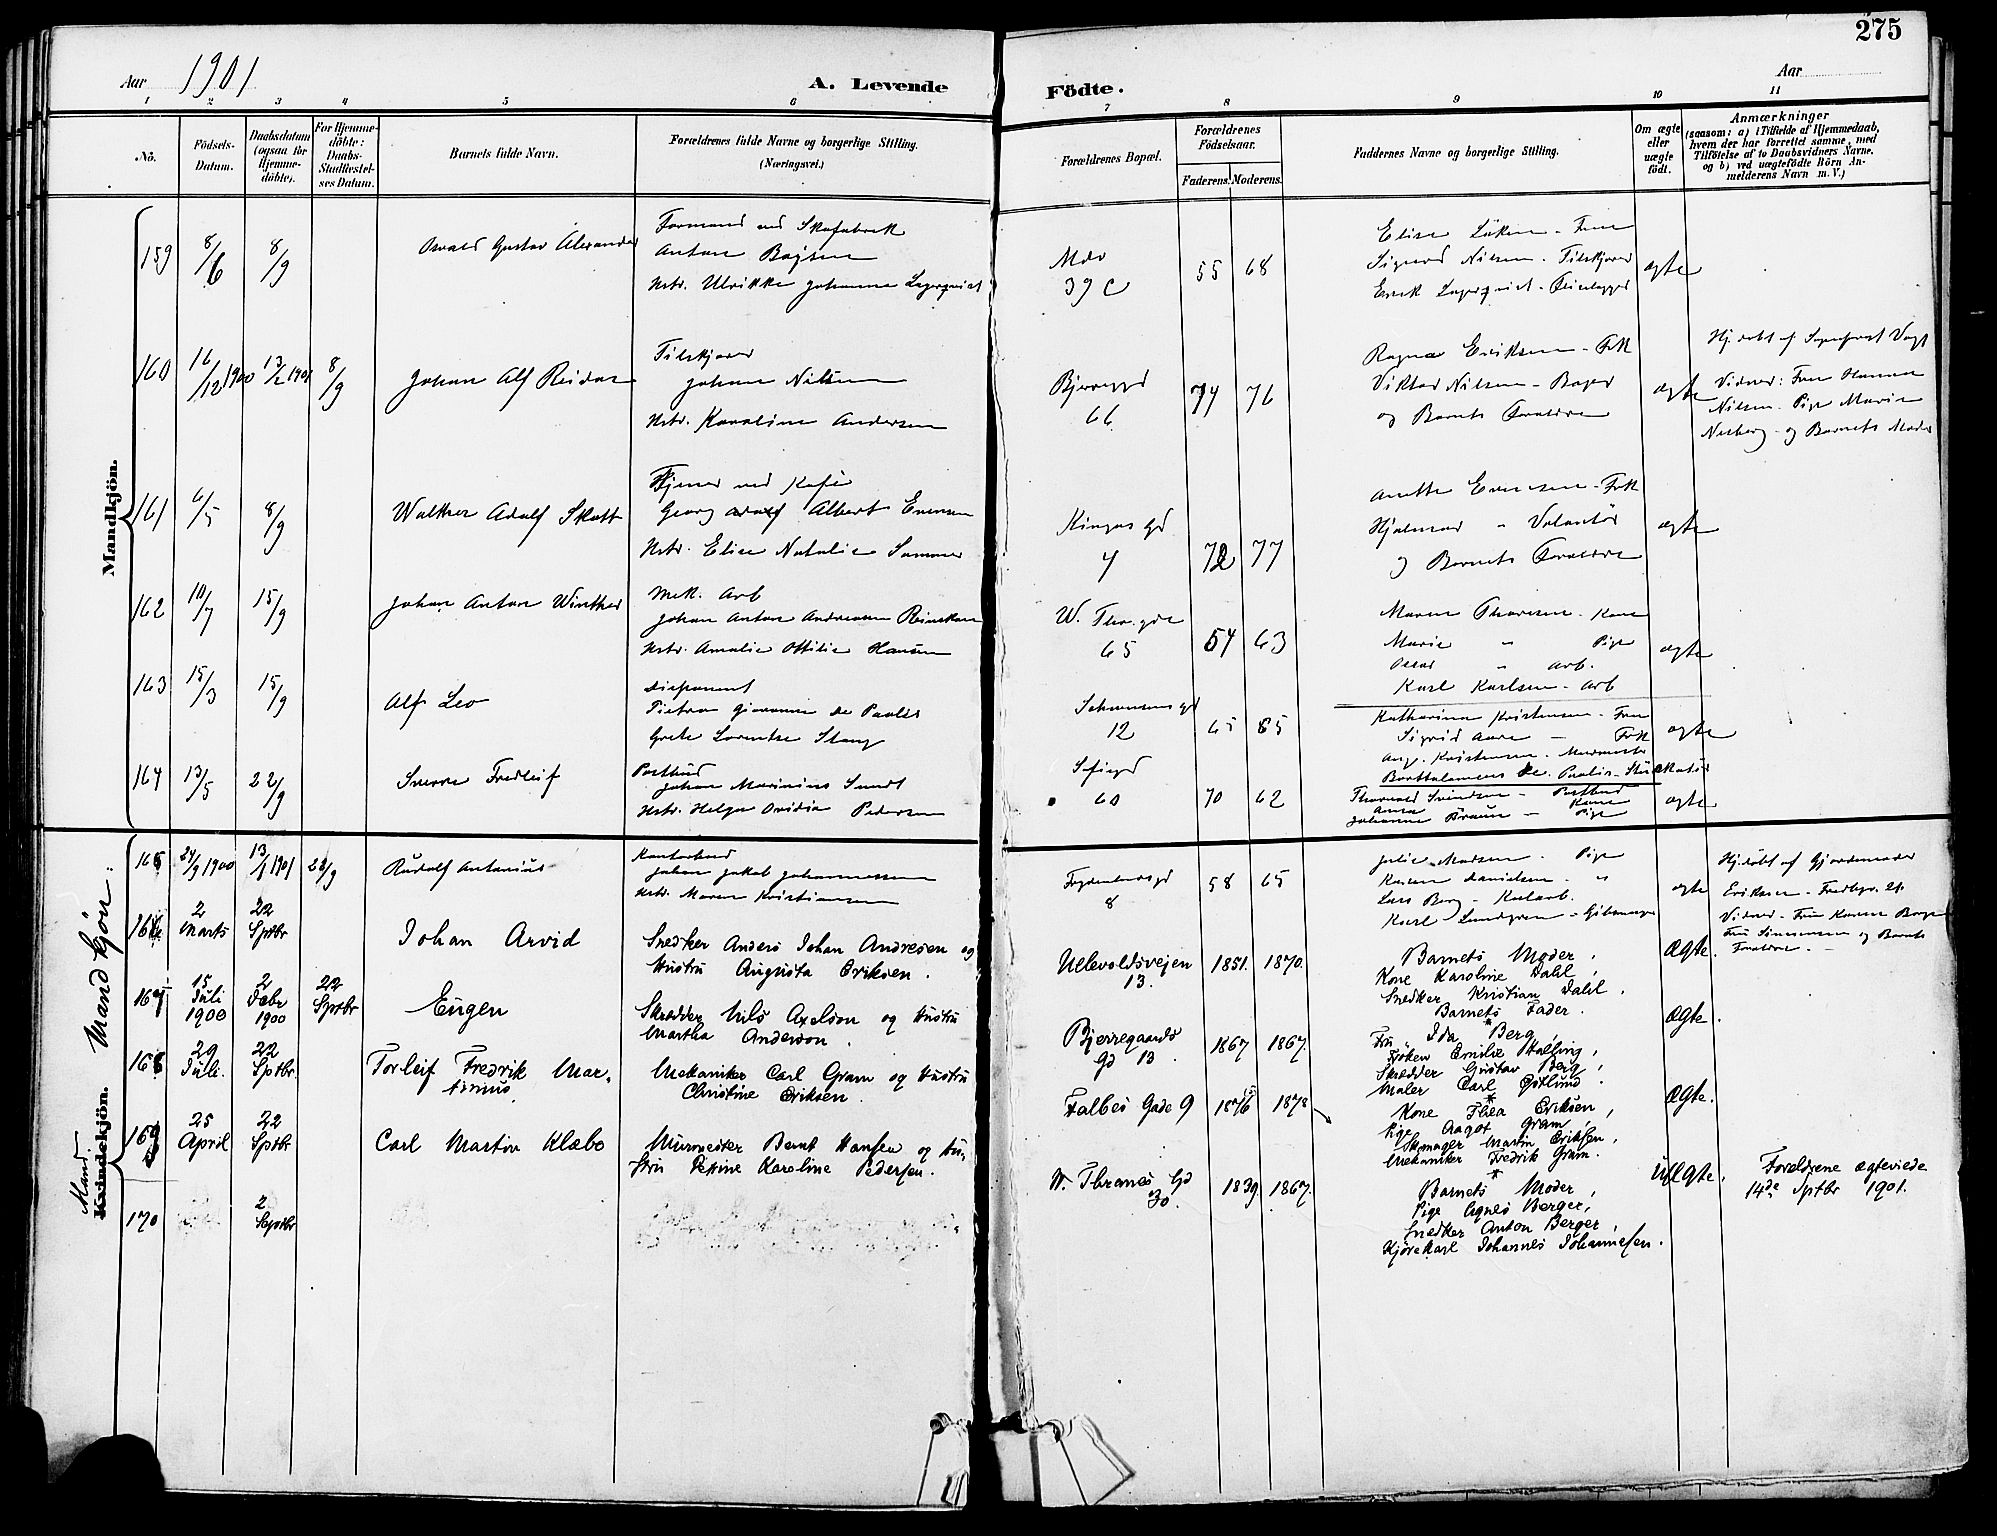 275
Aar 1901
A. Levende
Födte.
Aar
1 2 3 4 5 6 7 8 9 10 11
No.
Födsels-
Datum.
Daabsdatum
(ogsaa for
Hjemme-
döbte).
For Hjemme-
döbte:
Daabs-
Stadfæstel-
ses Datum.
Barnets fulde Navn.
Forældrenes fulde Navne og borgerlige Stilling.
(Næringsvei.)
Forældrenes Bopæl.
Forældrenes
Födselsaar.
Faderens. Moderens.
Faddernes Navne og borgerlige Stilling.
Om ægte
eller
uægte
födt.
Anmærkninger
(saasom: a) i Tilfælde af Hjemmedaab,
hvem der har forrettet samme, med
Tilföielse af to Daabsvidners Navne.
og b) ved uægtefödte Börn An-
melderens Navn m. V.)
Mandkjön.
159 8/6 8/9
Osvald Gustav Alexander
Formand ved Skofabrik
Anton Bøjsen
Hstr. Ulrikke Johanne Lagerqvist
39 c
55 68
Elise Løken - Frue
Sigurd Nilsen - Filskjærer
Erik Lagerqvist
ægte
160 16/12 1900 13/2 1901 8/9
Johan Alf Reidar
Filskjærer
Johan Nilsen
Hstr. Karoline Andersen
Bjerregd
66
74 76
Ragna Eriksen - Frk
Viktor Nilsen - Bager
og Barnets Forældre
ægte
Hj.døbt af Sognepræst Vogt
Vidner: Fru Hanna
Nilsen. Pige Marie
og Barnets Moder
161 6/5 8/9
Walther Adolf Skott
Tjener ved Kafé
Georg Adolf Albert Evensen
Hstr. Elise Natalie Sommer
Kingos gd
4
72 77
Anette Evensen - Frk
Hjalmar " Volontør
og Barnets Forældre
ægte
162 10/7 15/9
Johan Anton Winther
Mek. Arb
Johan Anton Andreassen
Hstr. Amalie Ottilie Hansen
W. Thr. gde
65
54 63
Maren Thoresen - Kone
Marie " Pige
Oscar " Arb.
Karl Karlsen - Arb
ægte
163 15/3 15/9
Alf Leo
Disponent
Pietro Giovanni de Paolis
Grete Lorentze Stang
Schwensensgd
12
65
Katharina Kristensen - Frue
Sigrid Aare - Frk
Aug. Kristensen - Murmester
Barttolomeus de Paolis
ægte
164 13/5 22/9
Sverre Fredleif
Postbud
Johan Marinius Sundt
Hstr. Helga Ovidia Pedersen
Sofiegd
60
70 62
Thorvald Svendsen - Postbud
Anna Kone
Johanne Braun - Pige
ægte
Mandkjön.
Mand.
Kvindekjön.
165 24/9 1900 13/1 1901 22/9
Rudolf Antonius
Kontorbud
Johan Jakob Johannessen
Hstr. Maren Kristiansen
Frydenlundsgd
8
58 65
Julie Madsen - Pige
Karen Danielsen - "
Lars Berg - Kularb.
Karl Lundgren
ægte
Hj.døbt af Gjordemoder
Eriksen - Fredbgr. 21.
Vidner - Fru Karen Berge
Fru Simensen og Barnets
Forældre. -
166 2 Marts 22 Sptbr
Johan Arvid
Snedker Anders Johan Andresen og
Hustru Augusta Eriksen.
Ullevoldsvejen
13.
1851. 1870.
Barnets Moder,
Kone Karoline Dahl,
Snedker Kristian Dahl.
Barnets Fader.
Ægte.
167 15 Juli 1900 2 Febr 1900 22 Sptbr
Eugen
Skrædder Nils Axelson og Hustru
Martha Anderson.
Bjerregaards
Gd 13.
1867 1867.
Fru Ida Berg,
Frøken Emilie Halling,
Skrædder Gustav Berg,
Maler Carl Östlund.
Ægte.
168 29 Juli. 22 Sptbr.
Torleif Fredrik Mar-
tinius
Mekaniker Carl Gram og Hustru
Christine Eriksen.
Falbes Gade 9
1876 1878
Kone Thea Eriksen,
Pige Aagot Gram
Skomager Martin Eriksen,
Mekaniker Fredrik Gram.
Ægte.
169 25 April 22 Sptbr
Carl Martin Klæbo
Murmester Bernt Hansen og Hu-
stru Pettine Karoline Pedersen.
W. Thranes Gd
30.
1839 1867.
Barnets Moder,
Pige Agnes Berger,
Snedker Anton Berger,
Kjørekarl Johannes Johannesen.
Uægte.
Forældrene ægteviede
14de Sptbr 1901.
170 2 Sptbr